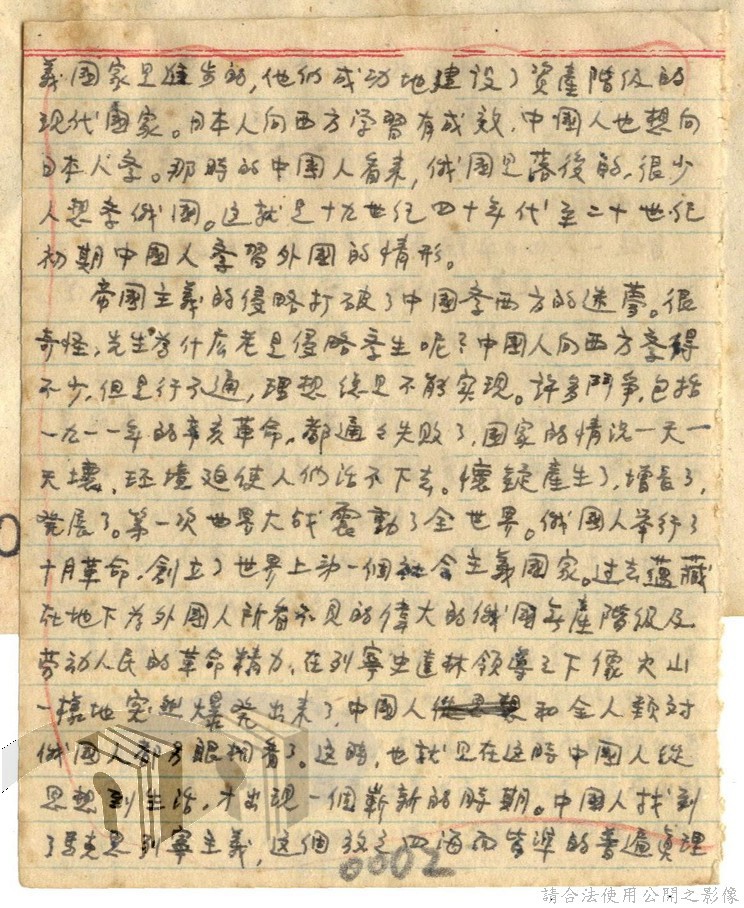 義國家是進步的,他們成功地建设了資產階级的
现代國家。日本人向西方学習有成效,中國人也想向
日本人学。那時的中國人看来,俄國是落後的,很少
人想学俄國。这就是十九世纪四十年代至二十世纪
初期中國人学習外國的情形。
帝國主義的侵略打破了中國学西方的迷夢。很
奇怪,先生為什広老是侵略学生呢?中國人向西方学得
不少,但是行不通,理想總是不能实现。許多鬥争,包括
一九一一年的辛亥革命,都通通失败了,國家的情况一天一
天壞,环境迫使人們活不下去。懷疑產生了,增長了,
発展了。第一次世界大战震動了全世界。俄國人举行了
十月革命,創立了世界上第一個社会主義國家。过去蕴藏
在地下為外國人所看不見的偉大的俄國無產階级及
劳动人民的革命精力,在列寧史達林领導之下像火山
一樣地突然爆発出来了,中國人和全人類对
俄國人都另眼相看了。这時,也就是在这時中國人從
思想到生活,才出现一個嶄新的時期。中國人找到
了馬克思列寧主義,这個放之四海而皆準的普遍真理
0002
請合法使用公開之影像